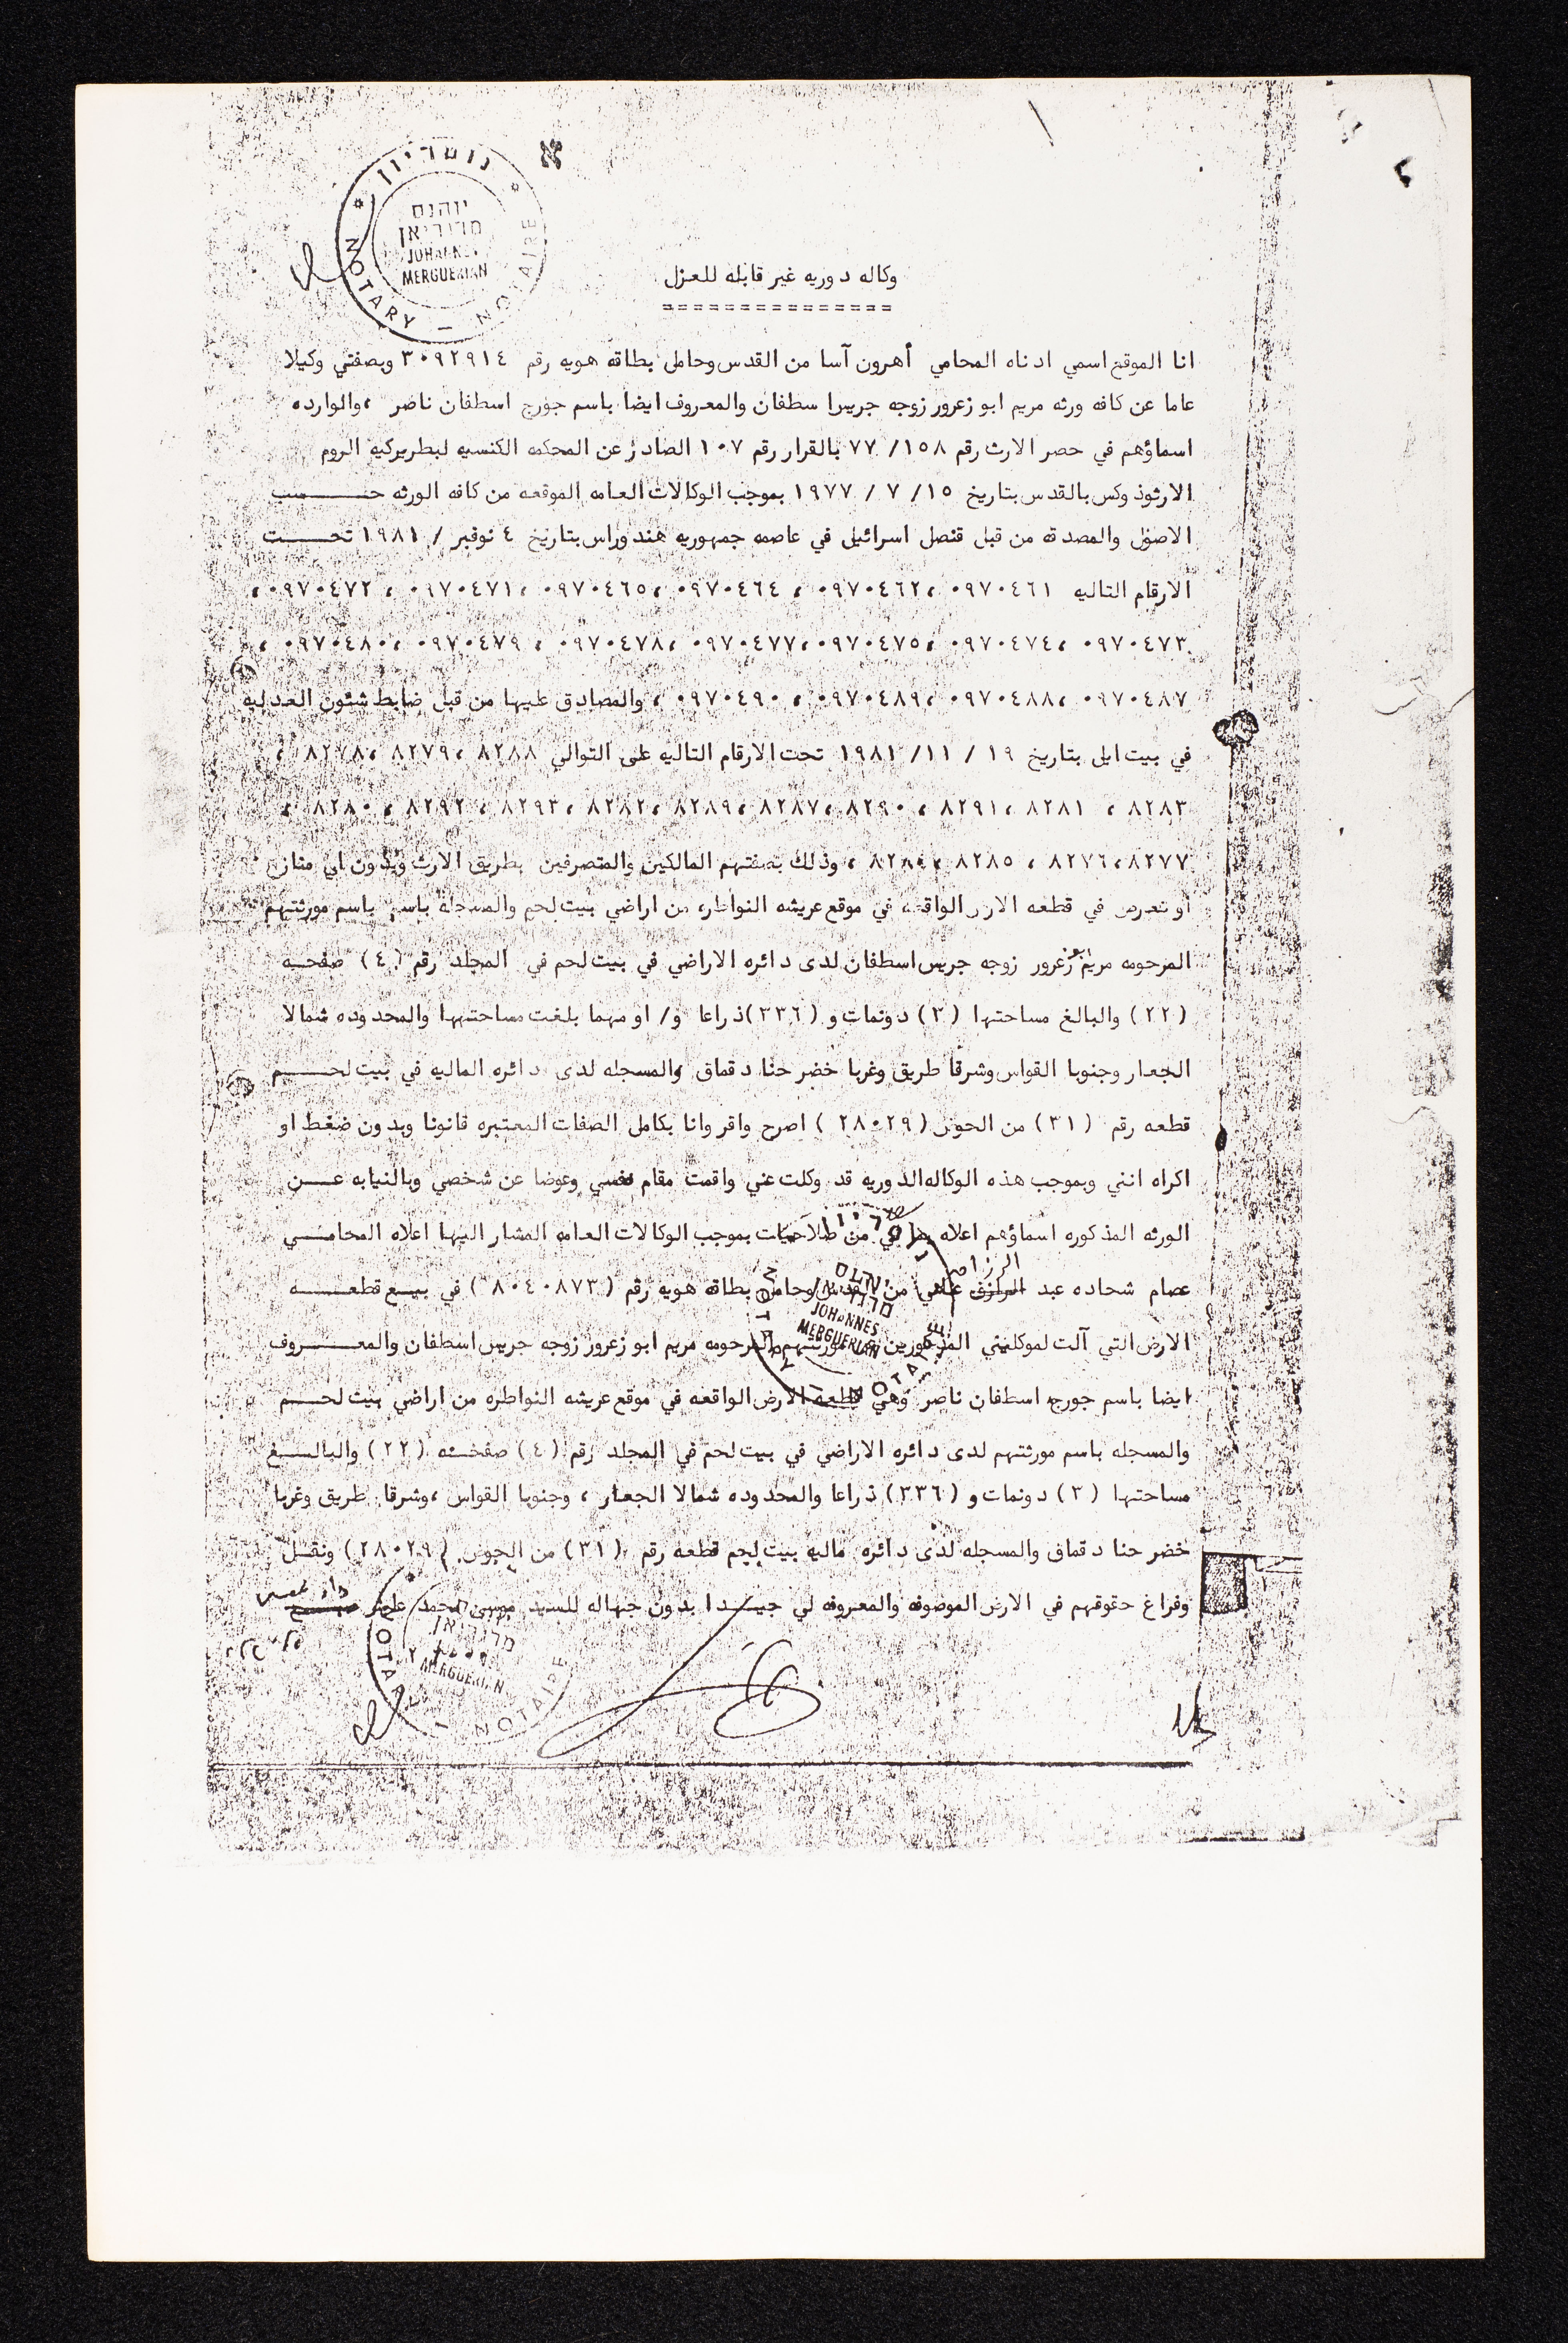 נוטריון
יוהנס
מרגריאן
JOHANNES
MERGUERIAN
NOTARY — NOTAIRE
وكاله دوريه غير قابله للعزل
===============
انا الموقع اسمي ادناه المحامي أهرون آسا من القدس وحامل بطاقة هويه رقم ٣٠٩٢٩١٤ وبصفتي وكيلا
عاما عن كافه ورثه مريم ابو زعرور زوجه جريس اسطفان والمعروف ايضا باسم جورج اسطفان ناصر ،والوارده
اسماؤهم في حصر الارث رقم ١٥٨/ ٧٧ بالقرار رقم ١٠٧ الصادر عن المحكمه الكنسيه لبطريركيه الروم
الارثوذوكس بالقدس بتاريخ ١٥/ ٧ / ١٩٧٧ بموجب الوكالات العامه الموقعه من كافه الورثه حسب
الاصول والمصدقه من قبل قنصل اسرائيل في عاصمه جمهوريه هندوراس بتاريخ ٤ نوفبر / ١٩٨١ تحت
الارقام التاليه ٠٩٧٠٤٦١ ،٠٩٧٠٤٦٢ ، ٠٩٧٠٤٦٤ ،٠٩٧٠٤٦٥ ،٠٩٧٠٤٧١ ، ٠٩٧٠٤٧٢ ،
٠٩٧٠٤٧٣ ،٠٩٧٠٤٧٤ ،٠٩٧٠٤٧٥ ،٠٩٧٠٤٧٧ ،٠٩٧٠٤٧٨ ، ٠٩٧٠٤٧٩ ،٠٩٧٠٤٨٠ ،
٠٩٧٠٤٨٧ ،٠٩٧٠٤٨٨ ،٠٩٧٠٤٨٩ ، ٠٩٧٠٤٩٠ ، والمصادق عليها من قبل ضابط شئون العدليه
في بيت ايل بتاريخ ١٩ / ١١/ ١٩٨١ تحت الارقام التاليه على التوالي ٨٢٨٨ ،٨٢٧٩ ،٨٢٧٨ ،
٨٢٨٣ ، ٨٢٨١ ،٨٢٩١ ، ٨٢٩٠ ،٨٢٨٧ ،٨٢٨٩ ،٨٢٨٢ ،٨٢٩٣ ، ٨٢٩٢ ، ٨٢٨٠ ،
٨٢٧٧ ،٨٢٧٦ ، ٨٢٨٥ ،٨٢٨٤ ، وذلك بصفتهم المالكين والمتصرفين بطريق الارث وبدون اي منازع
او تعرض في قطعه الارض الواقعه في موقع عريشه النواطره من اراضي بيت لحم والمسجله باسم باسم مورثتهم
المرحومه مريم ابو زعرور زوجه جريس اسطفان لدى دائره الاراضي في بيت لحم في المجلد رقم (٤) صفحه
(٢٢) والبالغ مساحتها (٣) دونمات و (٣٣٦)ذراعا و/ او مهما بلغت مساحتها والمحدوده شمالا
الجعار وجنوبا القواس وشرقا طريق وغربا خضر حنا دقماق والمسجله لدى دائره الماليه في بيت لحم
قطعه رقم (٣١) من الحوض (٢٨٠٢٩) اصرح واقر وانا بكامل الصفات المعتبره قانونا وبدون ضغط او
اكراه انني وبموجب هذه الوكاله الدوريه قد وكلت عني واقمت مقام نفسي وعوضا عن شخصي وبالنيابه عن
الورثه المذكوره اسماؤهم اعلاه بما لي من صلاحيات بموجب الوكالات العامه المشار اليها اعلاه المحامي
الرزاق
عصام شحاده عبد من القدس وحامل بطاقه هويه رقم (٨٠٤٠٨٧٣) في بيع قطعه
الارض التي آلت لموكليني المذكورين من مورثتهم المرحومه مريم ابو زعرور زوجه جريس اسطفان والمعروف
ايضا باسم جورج اسطفان ناصر وهي قطعه الارض الواقعه في موقع عريشه النواطره من اراضي بيت لحم
والمسجله باسم مورثتهم لدى دائره الاراضي في بيت لحم في المجلد رقم (٤) صفحه (٢٢) والبالغ
مساحتها (٣) دونمات و (٣٣٦) ذراعا والمحدوده شمالا الجعار ، وجنوبا القواس ،وشرقا طريق وغربا
خضر حنا دقماق والمسجله لدى دائره ماليه بيت لحم قطعه رقم (٣١) من الحوض (٢٨٠٢٩) ونقل
وفراغ حقوقهم في الارض الموصوفه والمعروفه لي جيدا بدون جهاله للسيد موسى محمد
JOHANNES
MERGUERIAN
MERGUERIAN
NOTAIRE